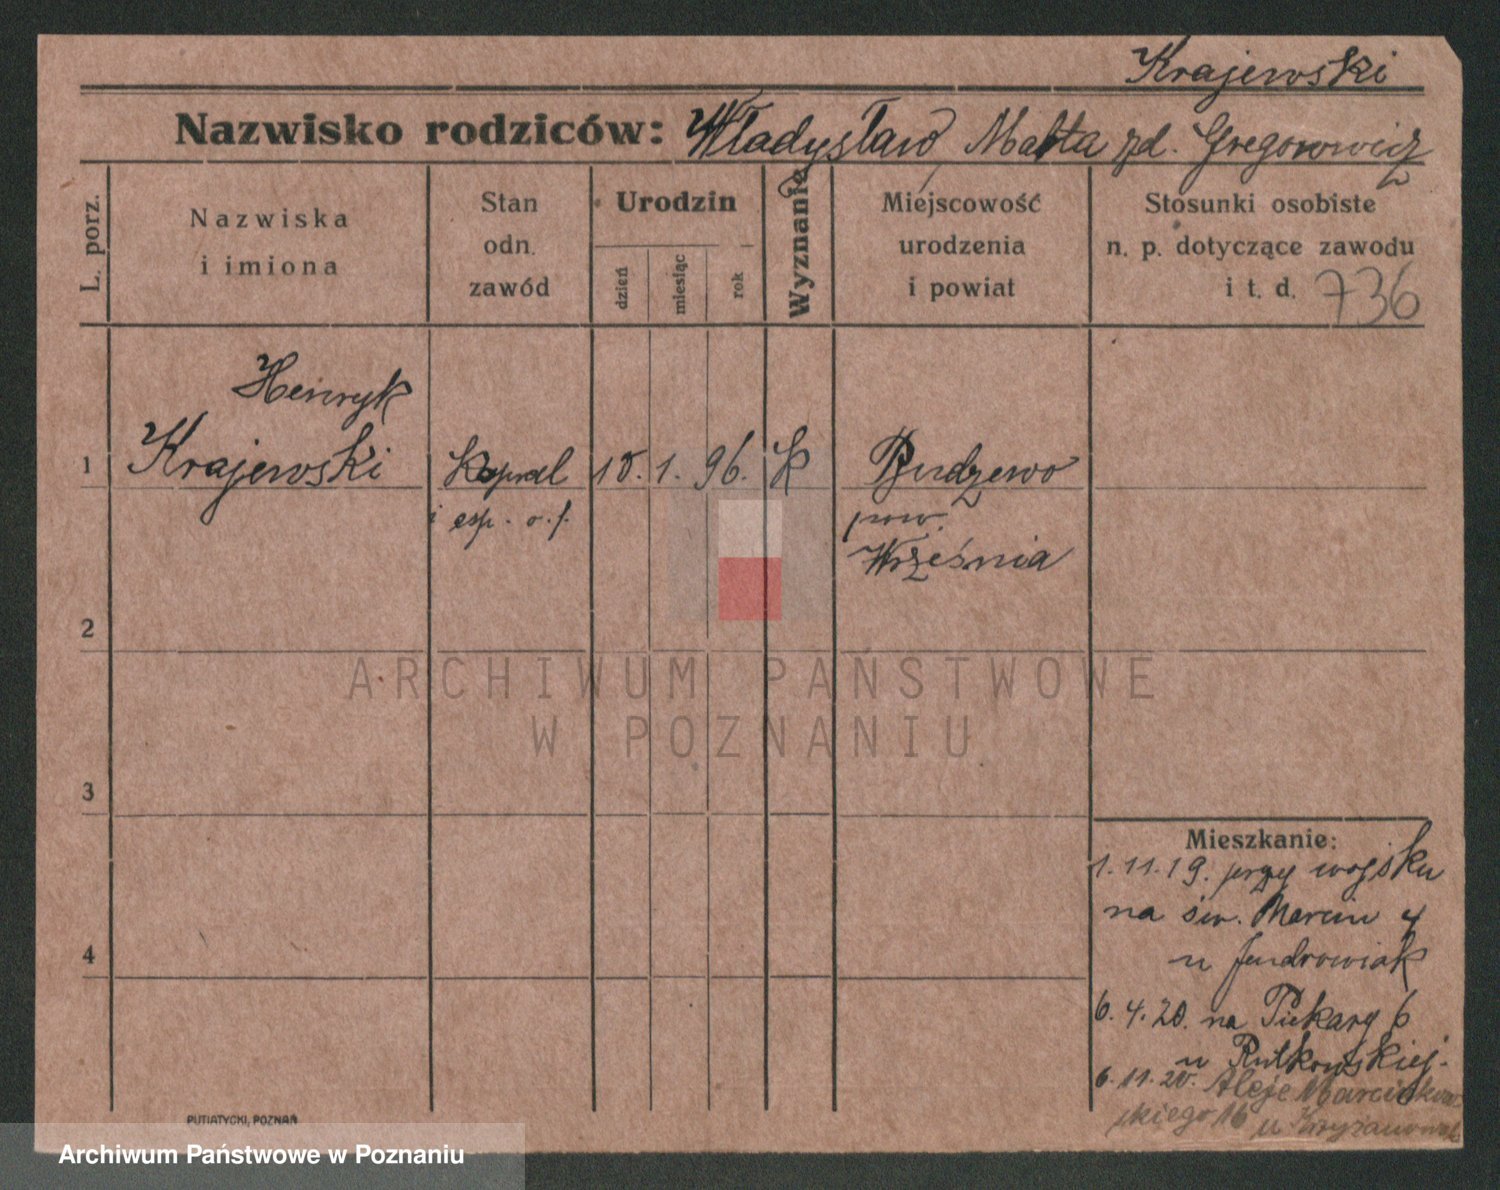 Krajewski
Nazwisko rodziców: Władysław Malta zd. Gregorowicz
L. porz.
Nazwiska
i imiona
Stan
odn.
zawód
Urodzin
dzień
miesiąc
rok
Wyznanie
Miejscowość
urodzenia
i powiat
Stosunki osobiste
n. p. dotyczące zawodu
i t. d. 736
Henryk
1 Krajewski Kapral 15. 1. 96. k Budzewo
i esp. o. f. pow.
Września
2
3
4
Mieszkanie:
1.11.19. przy wojsku
na św. Marcin 4
u Jendrowiak
6.4.20. na Piekary 6
u Rutkowskiej.
6.11.20. Aleje Marcinkow
skiego 16 u Krzyżanowsk
PUTIATYCKI, POZNAŃ
ARCHIWUM PAŃSTWOWE
W POZNANIU
Archiwum Państwowe w Poznaniu